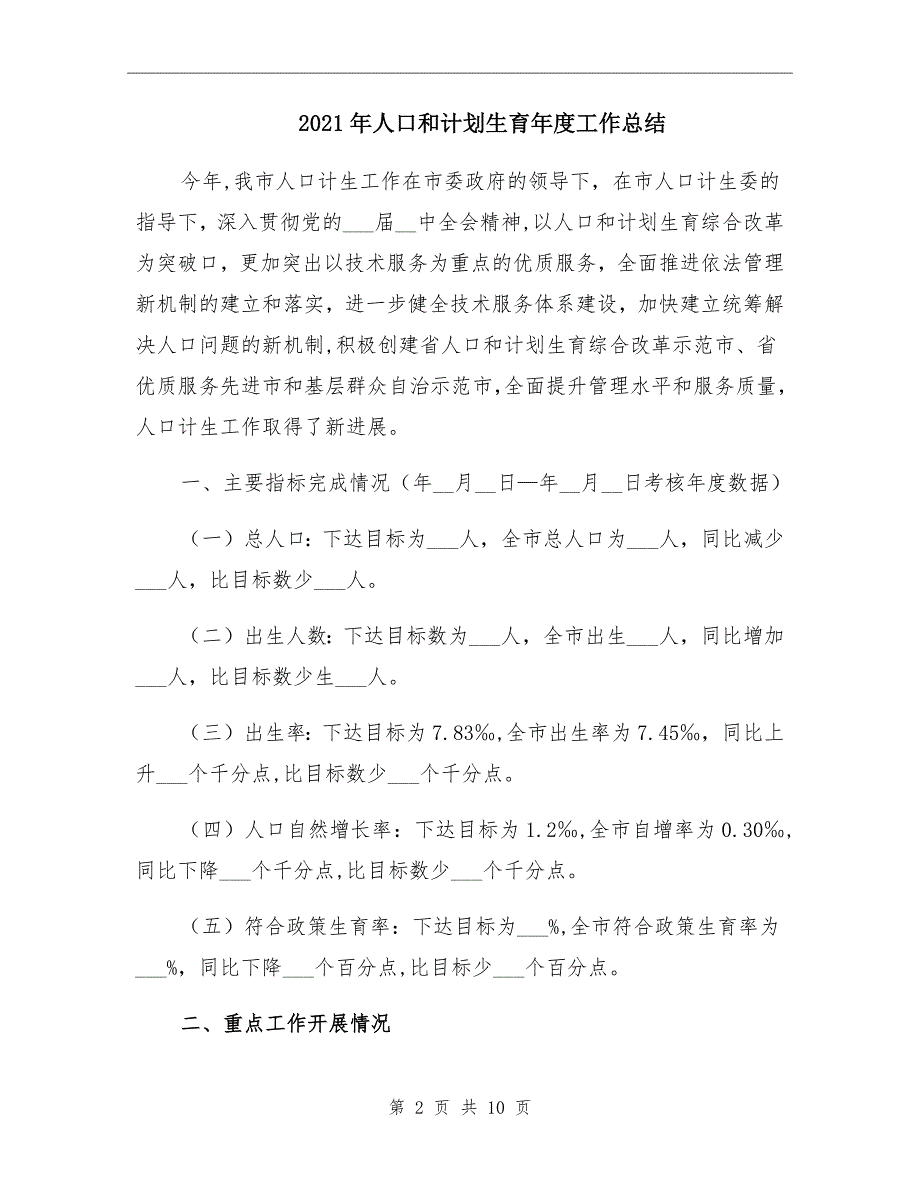 2021年人口和计划生育年度工作总结
今年,我市人口计生工作在市委政府的领导下，在市人口计生委的
指导下，深入贯彻党的___届__中全会精神,以人口和计划生育综合改革
为突破口，更加突出以技术服务为重点的优质服务，全面推进依法管理
新机制的建立和落实，进一步健全技术服务体系建设，加快建立统筹解
决人口问题的新机制,积极创建省人口和计划生育综合改革示范市、省
优质服务先进市和基层群众自治示范市,全面提升管理水平和服务质量，
人口计生工作取得了新进展。
一、主要指标完成情况（年__月__日—年__月__日考核年度数据）
（一）总人口：下达目标为___人，全市总人口为___人，同比减少
___人，比目标数少___人。
（二）出生人数：下达目标数为___人，全市出生___人，同比增加
___人，比目标数少生___人。
（三）出生率：下达目标为7.83‰,全市出生率为7.45‰，同比上
升___个千分点,比目标数少___个千分点。
（四）人口自然增长率：下达目标为1.2‰,全市自增率为0.30‰,
同比下降___个千分点,比目标数少___个千分点。
（五）符合政策生育率：下达目标为___%,全市符合政策生育率为
___%，同比下降___个百分点,比目标少___个百分点。
二、重点工作开展情况
第 2 页 共 10 页